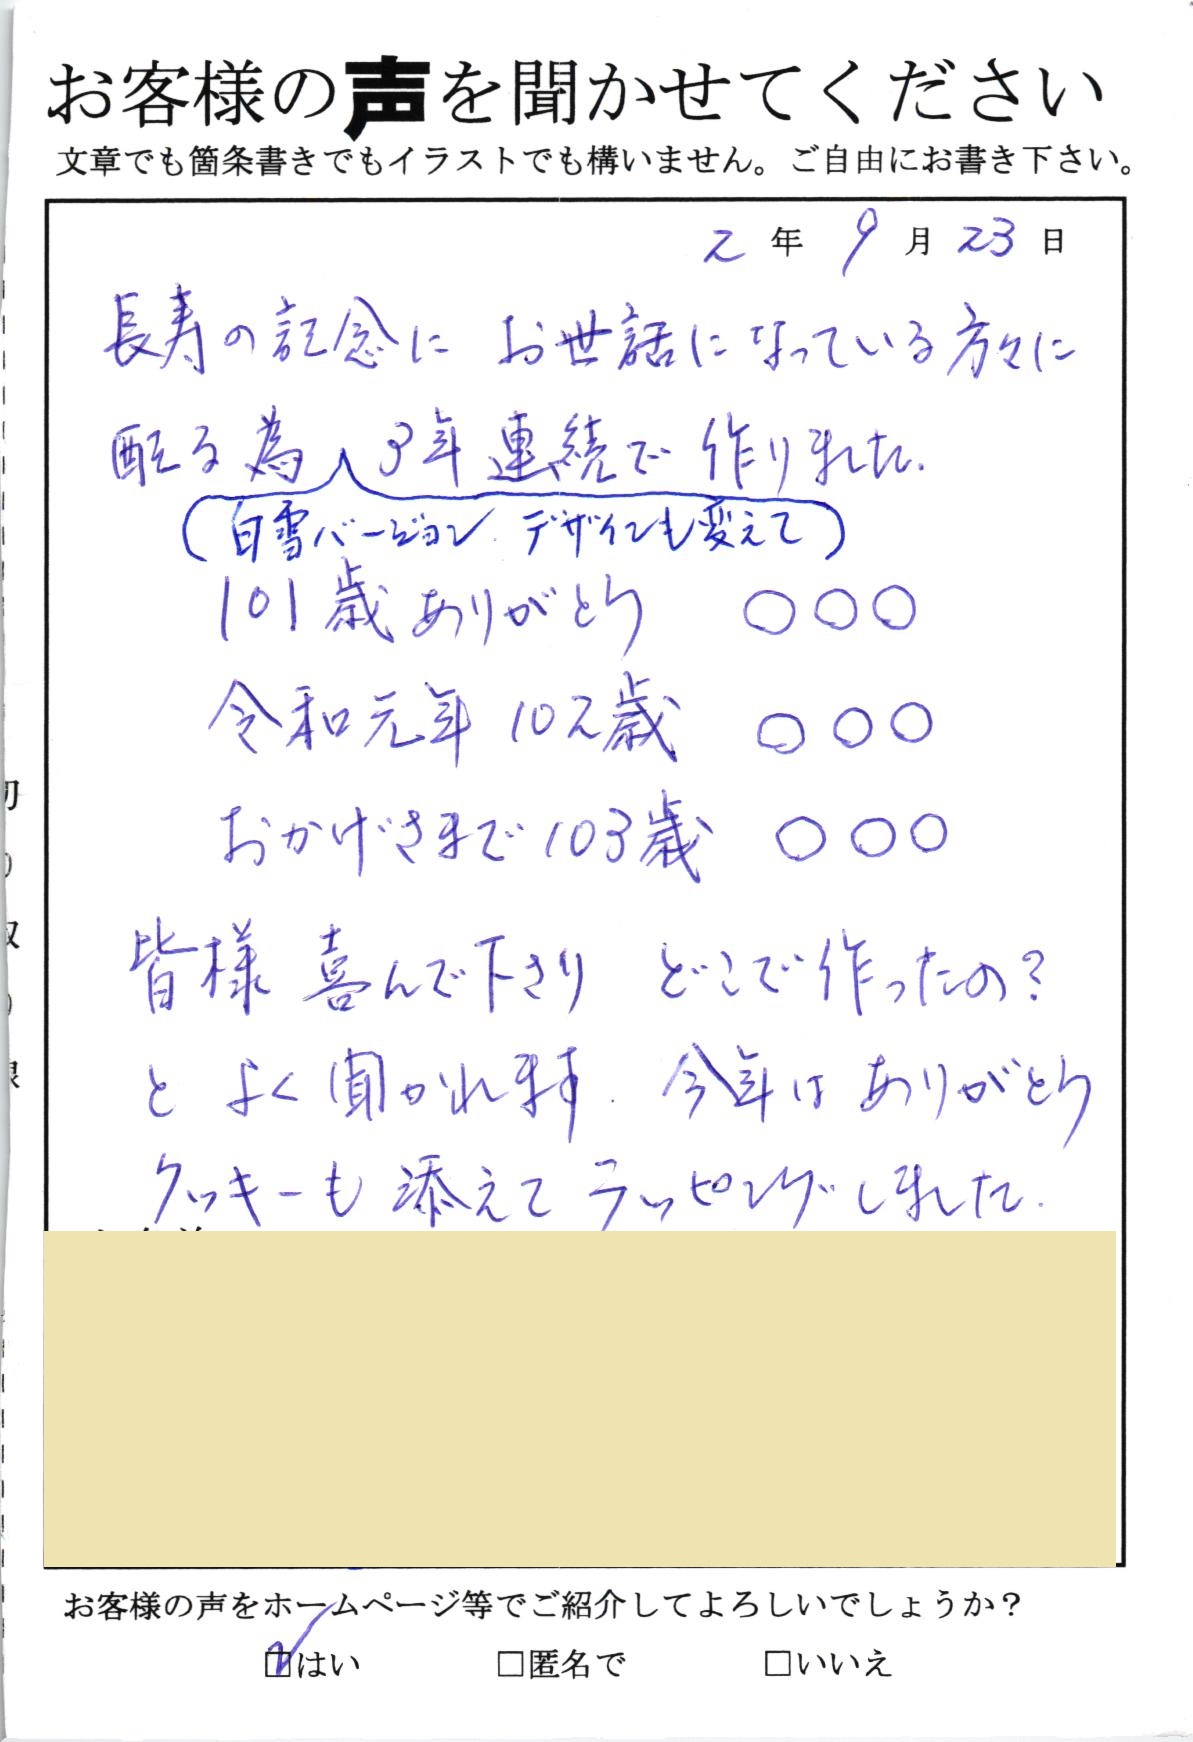 お客様の声を聞かせてください
文章でも箇条書きでもイラストでも構いません。ご自由にお書き下さい。
2年9月23日
長寿の記念に お世話になっている方々に
配る為 3年連続で作りました.
(白雪バージョン デザインも変えて)
101歳ありがとう ○○○
令和元年102歳 ○○○
おかげさまで103歳 ○○○
皆様喜んで下さり どこで作ったの?
とよく聞かれます. 今年はありがとう
クッキーも添えてラッピングしました.
お客様の声をホームページ等でご紹介してよろしいでしょうか?
☑はい □匿名で □いいえ